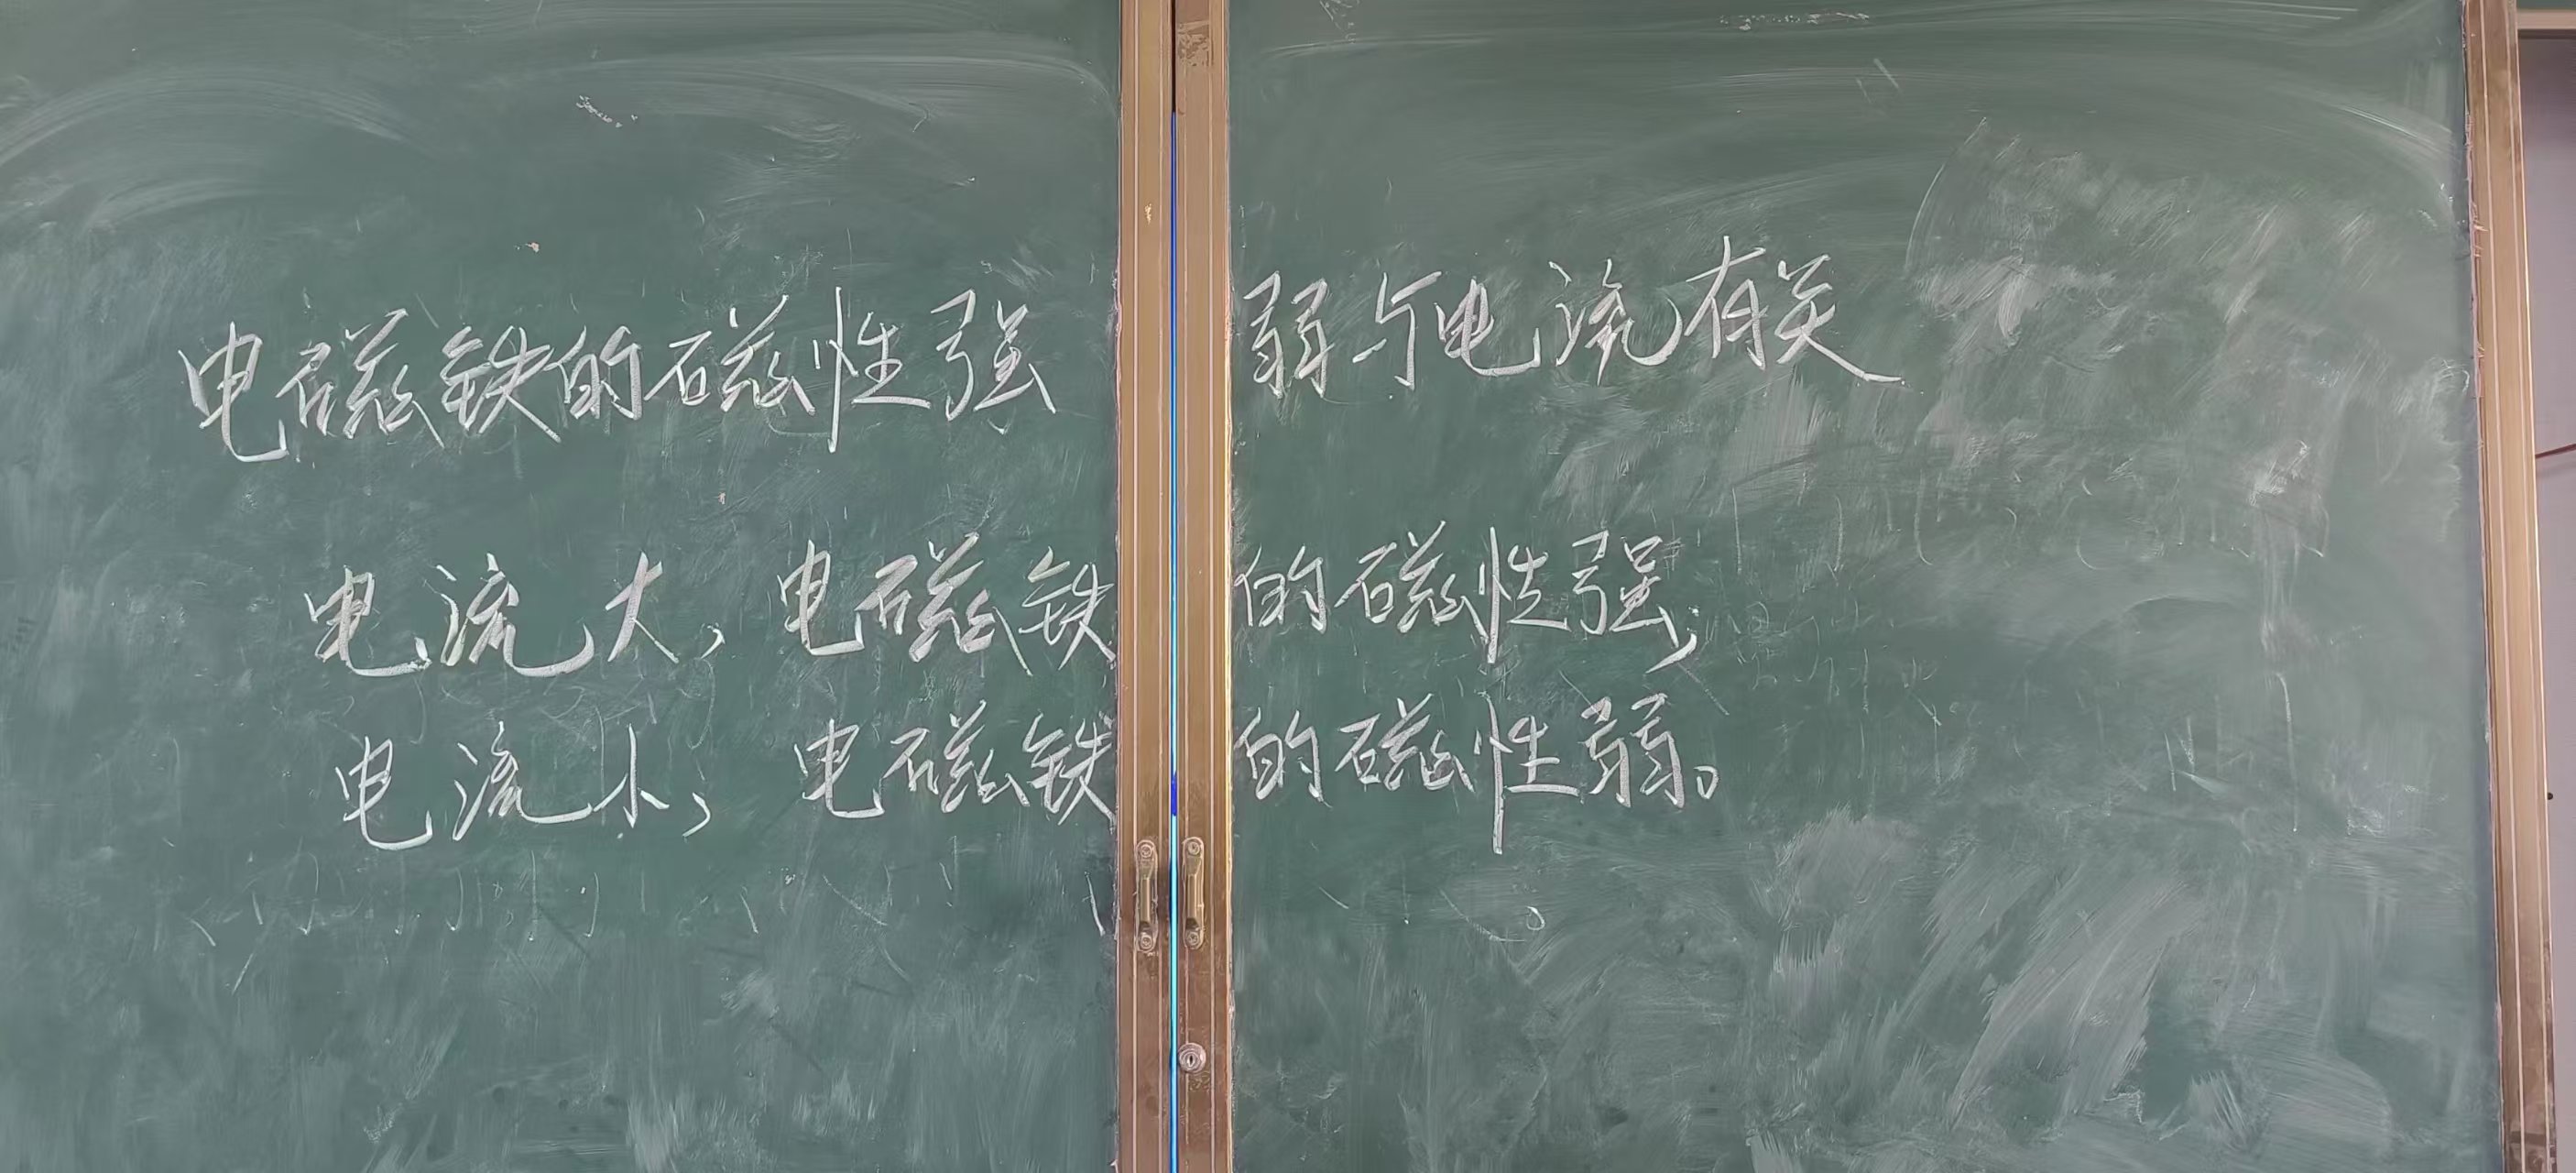 电磁铁的磁性强弱与电流有关
电流大，电磁铁的磁性强；
电流小，电磁铁的磁性弱。